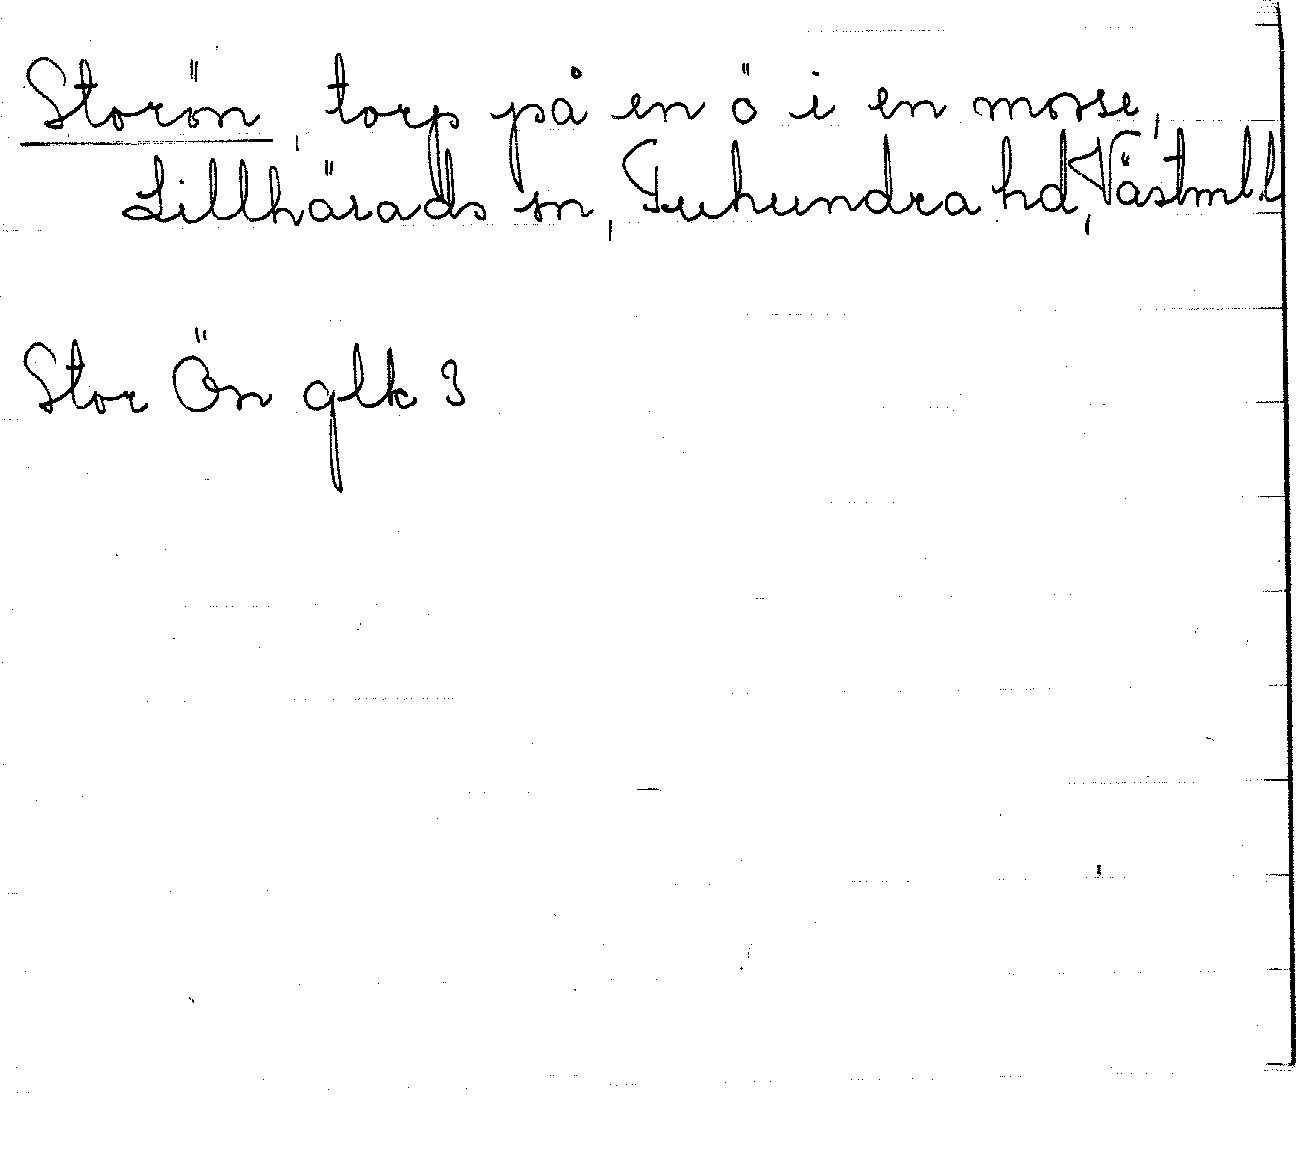 Storön, torp på en ö i en mosse,
Lillhärads sn, Tuhundra hd, Västmll
Stor Ön glk 3